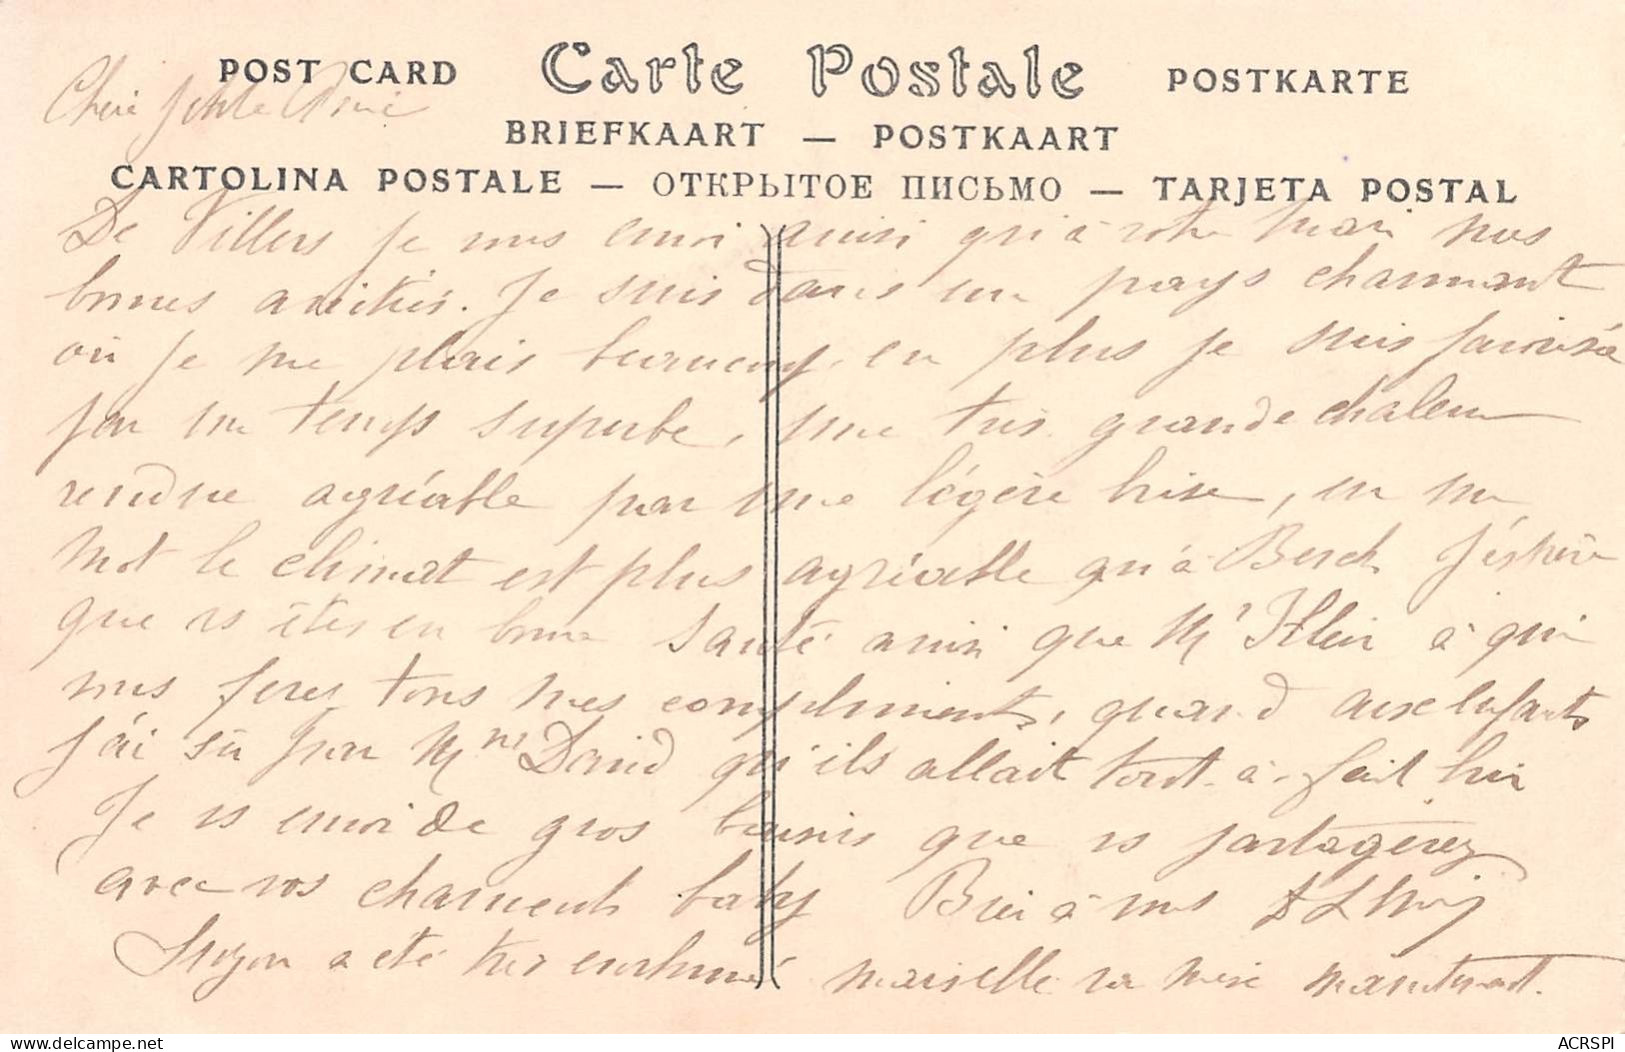 POST CARD Carte Postale POSTKARTE
Chère petite Amie
BRIEFKAART — POSTKAART
CARTOLINA POSTALE — ОТКРЫТОЕ ПИСЬМО — TARJETA POSTAL
De Villers je vous envoi ainsi qu'à votre mari nos
bonnes amitiés. Je suis dans un pays charmant
où je me plais beaucoup, en plus je suis favorisée
par un temps superbe, une très grande chaleur
rendue agréable par une légère brise, en un
mot le climat est plus agréable qu'à Berck j'espère
que vs êtes en bonne santé ainsi que Mr Klein à qui
vous ferez tous mes compliments, quand aux enfants
j'ai sû par Mme David qu'ils allait tout-à-fait bien
Je vs envoi de gros baisers que vs partagerez
avec vos charmants baby Bien à vous
Suzon a été très enrhumé mais elle va mieux maintenant.
ACRSPI